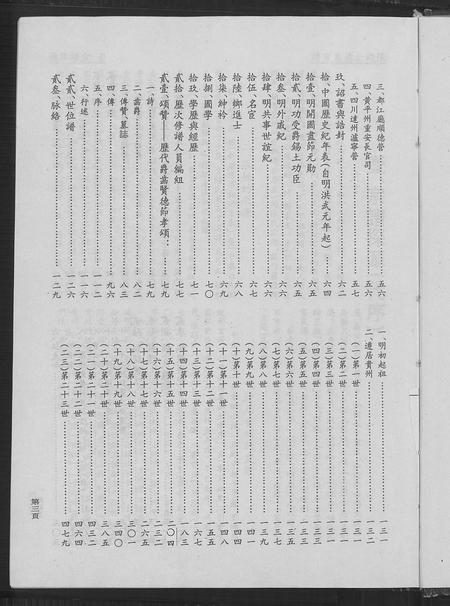 三、都江廳順德營………五六
四、黃平州重安長官司………五六
五、四川達州瀘寧營………五七
玖、詔書與誥封………六二
拾、中國歷史紀年表(自明洪武元年起)………六四
拾壹、明開國畫節元勛………六五
拾貳、明功受爵錫土功臣………六五
拾叁、明外戚紀………六六
拾肆、明共事世誼紀………六六
拾伍、名宦………六七
拾陸、鄉進士………六八
拾柒、紳衿………六九
拾捌、國學………七〇
拾玖、學歷與經歷………七一
貳拾、歷次修譜人員編組………七七
貳壹、頌贊——歷代爵齒賢德節孝頌………七九
一、詩………七九
二、齒爵………八二
三、傳贊、墓誌………八三
四、傳………九六
五、序………一一二
六、行述………一二六
貳貳、世位譜………一二六
貳叁、脉絡………一二九
一、明初起祖………一三一
二、遷居貴州………一三二
(一)第一世………一三一
(二)第二世………一三一
(三)第三世………一三一
(四)第四世………一三三
(五)第五世………一三三
(六)第六世………一三五
(七)第七世………一三五
(八)第八世………一三九
(九)第九世………
(十)第十世………一四四
(十一)第十一世………一四八
(十二)第十二世………一五五
(十三)第十三世………一六七
(十四)第十四世………一八三
(十五)第十五世………二〇四
(十六)第十六世………二三二
(十七)第十七世………二六五
(十八)第十八世………三〇一
(十九)第十九世………三四〇
(二十)第二十世………三八五
(二一)第二十一世………四三二
(二二)第二十二世………四六四
(二三)第二十三世………四七九
第三頁